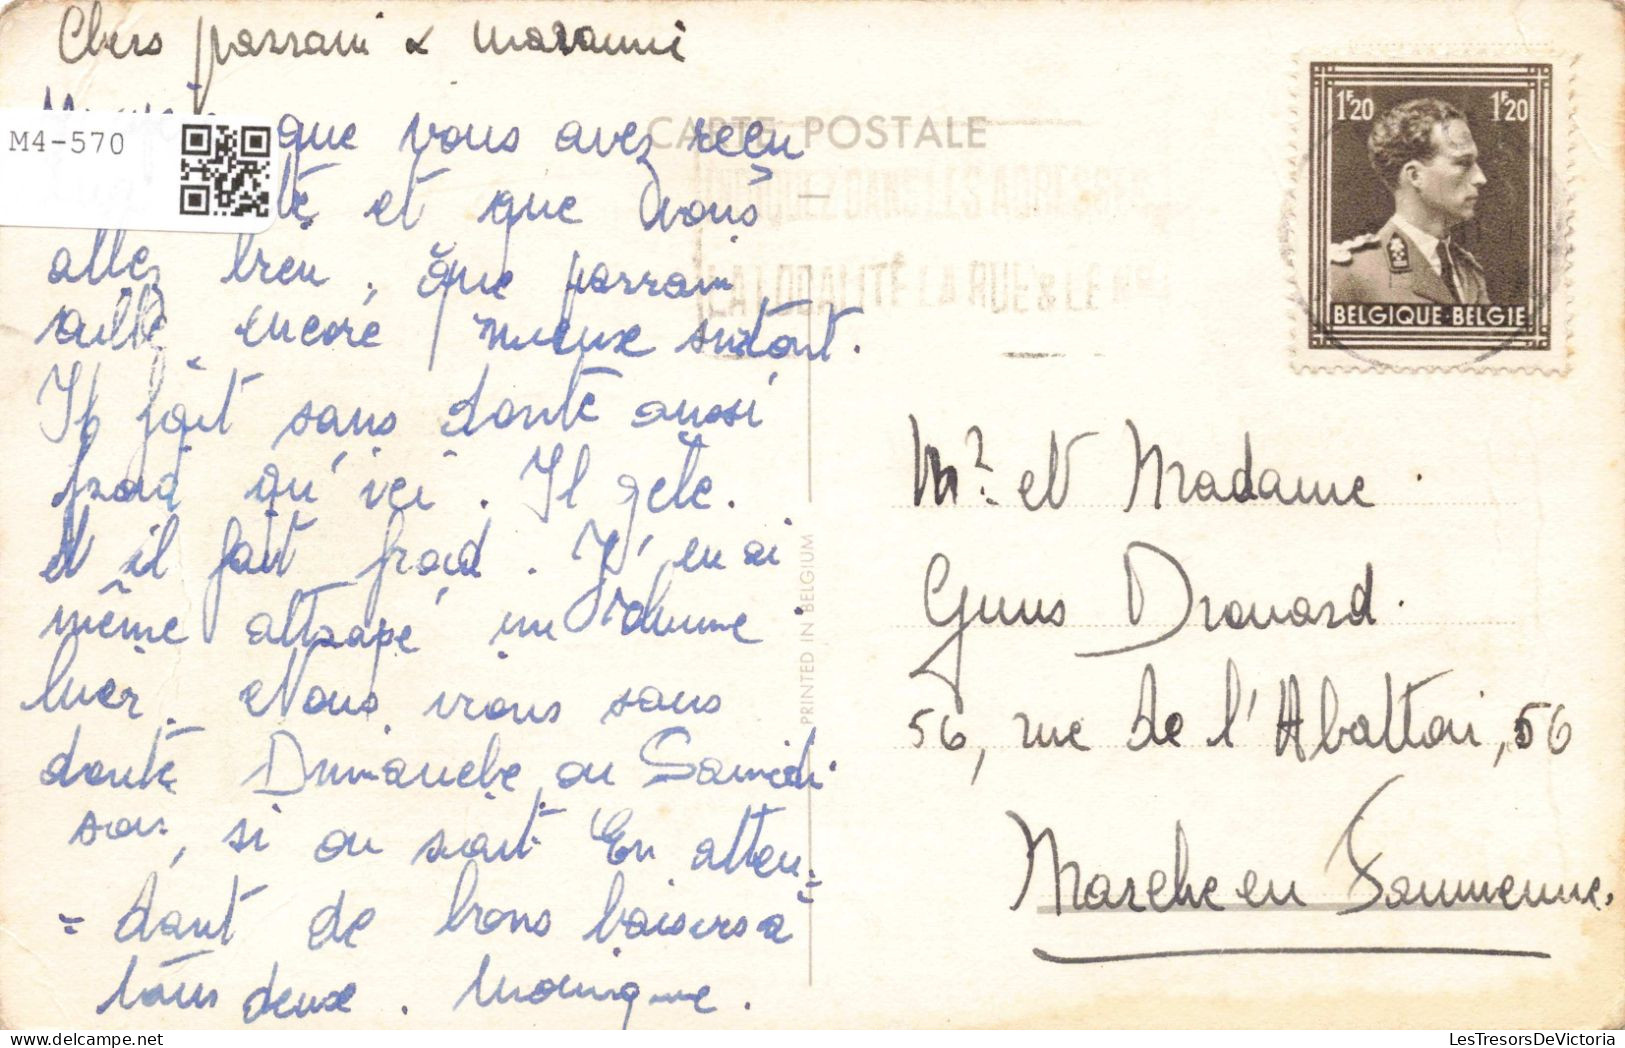 Chers parrain & marainne
que vous avez reçu
et que vous
allez bien. Que parrain
aille encore mieux surtout.
Il fait sans doute aussi
froid qu'ici. Il gèle.
et il fait froid. J'en ai
même attrapé un rhume
hier. Nous irons sans
doute Dimanche ou Samedi
soir, si on sort. En atten=
=dant de bons baisers à
tous deux. Monique.
M4-570
CARTE POSTALE
INDIQUEZ DANS LES ADRESSES
LA LOCALITÉ LA RUE & LE
PRINTED IN BELGIUM
1F20 1F20
BELGIQUE·BELGIE
Mr et Madame
Drouard.
56, rue de l'Abattoi, 56
Marche en Fammenne.
LesTresorsDeVictoria